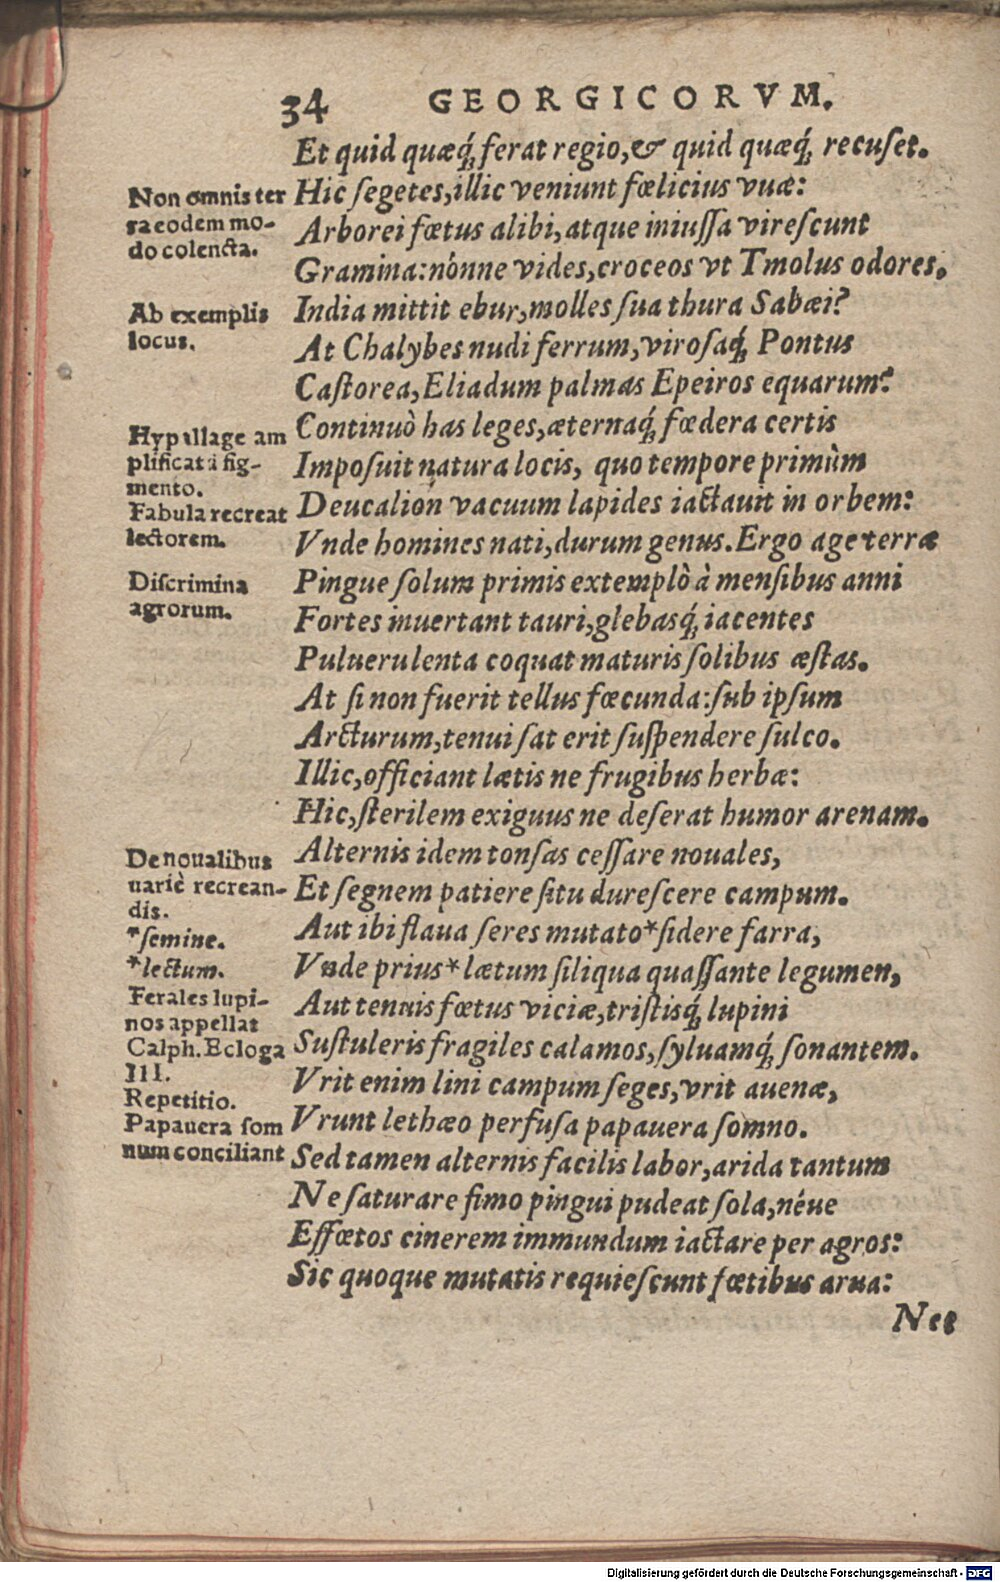 34 GEORGICORVM.
Et quid quæq́; ferat regio, & quid quæq́; recuset.
Non omnis ter
ra eodem mo-
do colenda.
Hic segetes, illic veniunt fœlicius vuæ:
Arborei fœtus alibi, atque iniussa virescunt
Gramina: nónne vides, croceos vt Tmolus odores,
Ab exemplis
locus.
India mittit ebur, molles sua thura Sabæi?
At Chalybes nudi ferrum, virosaq́; Pontus
Castorea, Eliadum palmas Epeiros equarum?
Hypallage am
plificata fig-
mento.
Continuò has leges, æternaq́; fœdera certis
Imposuit natura locis, quo tempore primùm
Fabula recreat
lectorem.
Deucalion vacuum lapides iactauit in orbem:
Vnde homines nati, durum genus. Ergo age terræ
Discrimina
agrorum.
Pingue solum primis extemplò à mensibus anni
Fortes inuertant tauri, glebasq́; iacentes
Puluerulenta coquat maturis solibus æstas.
At si non fuerit tellus fœcunda: sub ipsum
Arcturum, tenui sat erit suspendere sulco.
Illic, officiant lætis ne frugibus herbæ:
Hic, sterilem exiguus ne deserat humor arenam.
De noualibus
uariè recrean-
dis.
Alternis idem tonsas cessare nouales,
Et segnem patiere situ durescere campum.
*semine.
*lectum.
Aut ibi flaua seres mutato *sidere farra,
Vnde prius *lætum siliqua quassante legumen,
Ferales lupi-
nos appellat
Calph. Ecloga
III.
Aut tenuis fœtus viciæ, tristisq́; lupini
Sustuleris fragiles calamos, syluamq́; sonantem.
Repetitio.
Vrit enim lini campum seges, vrit auenæ,
Papauera som
num conciliant
Vrunt lethæo perfusa papauera somno.
Sed tamen alternis facilis labor, arida tantum
Ne saturare fimo pingui pudeat sola, néue
Effœtos cinerem immundum iactare per agros:
Sic quoque mutatis requiescunt fœtibus arua:
Nec
Digitalisierung gefördert durch die Deutsche Forschungsgemeinschaft - DFG